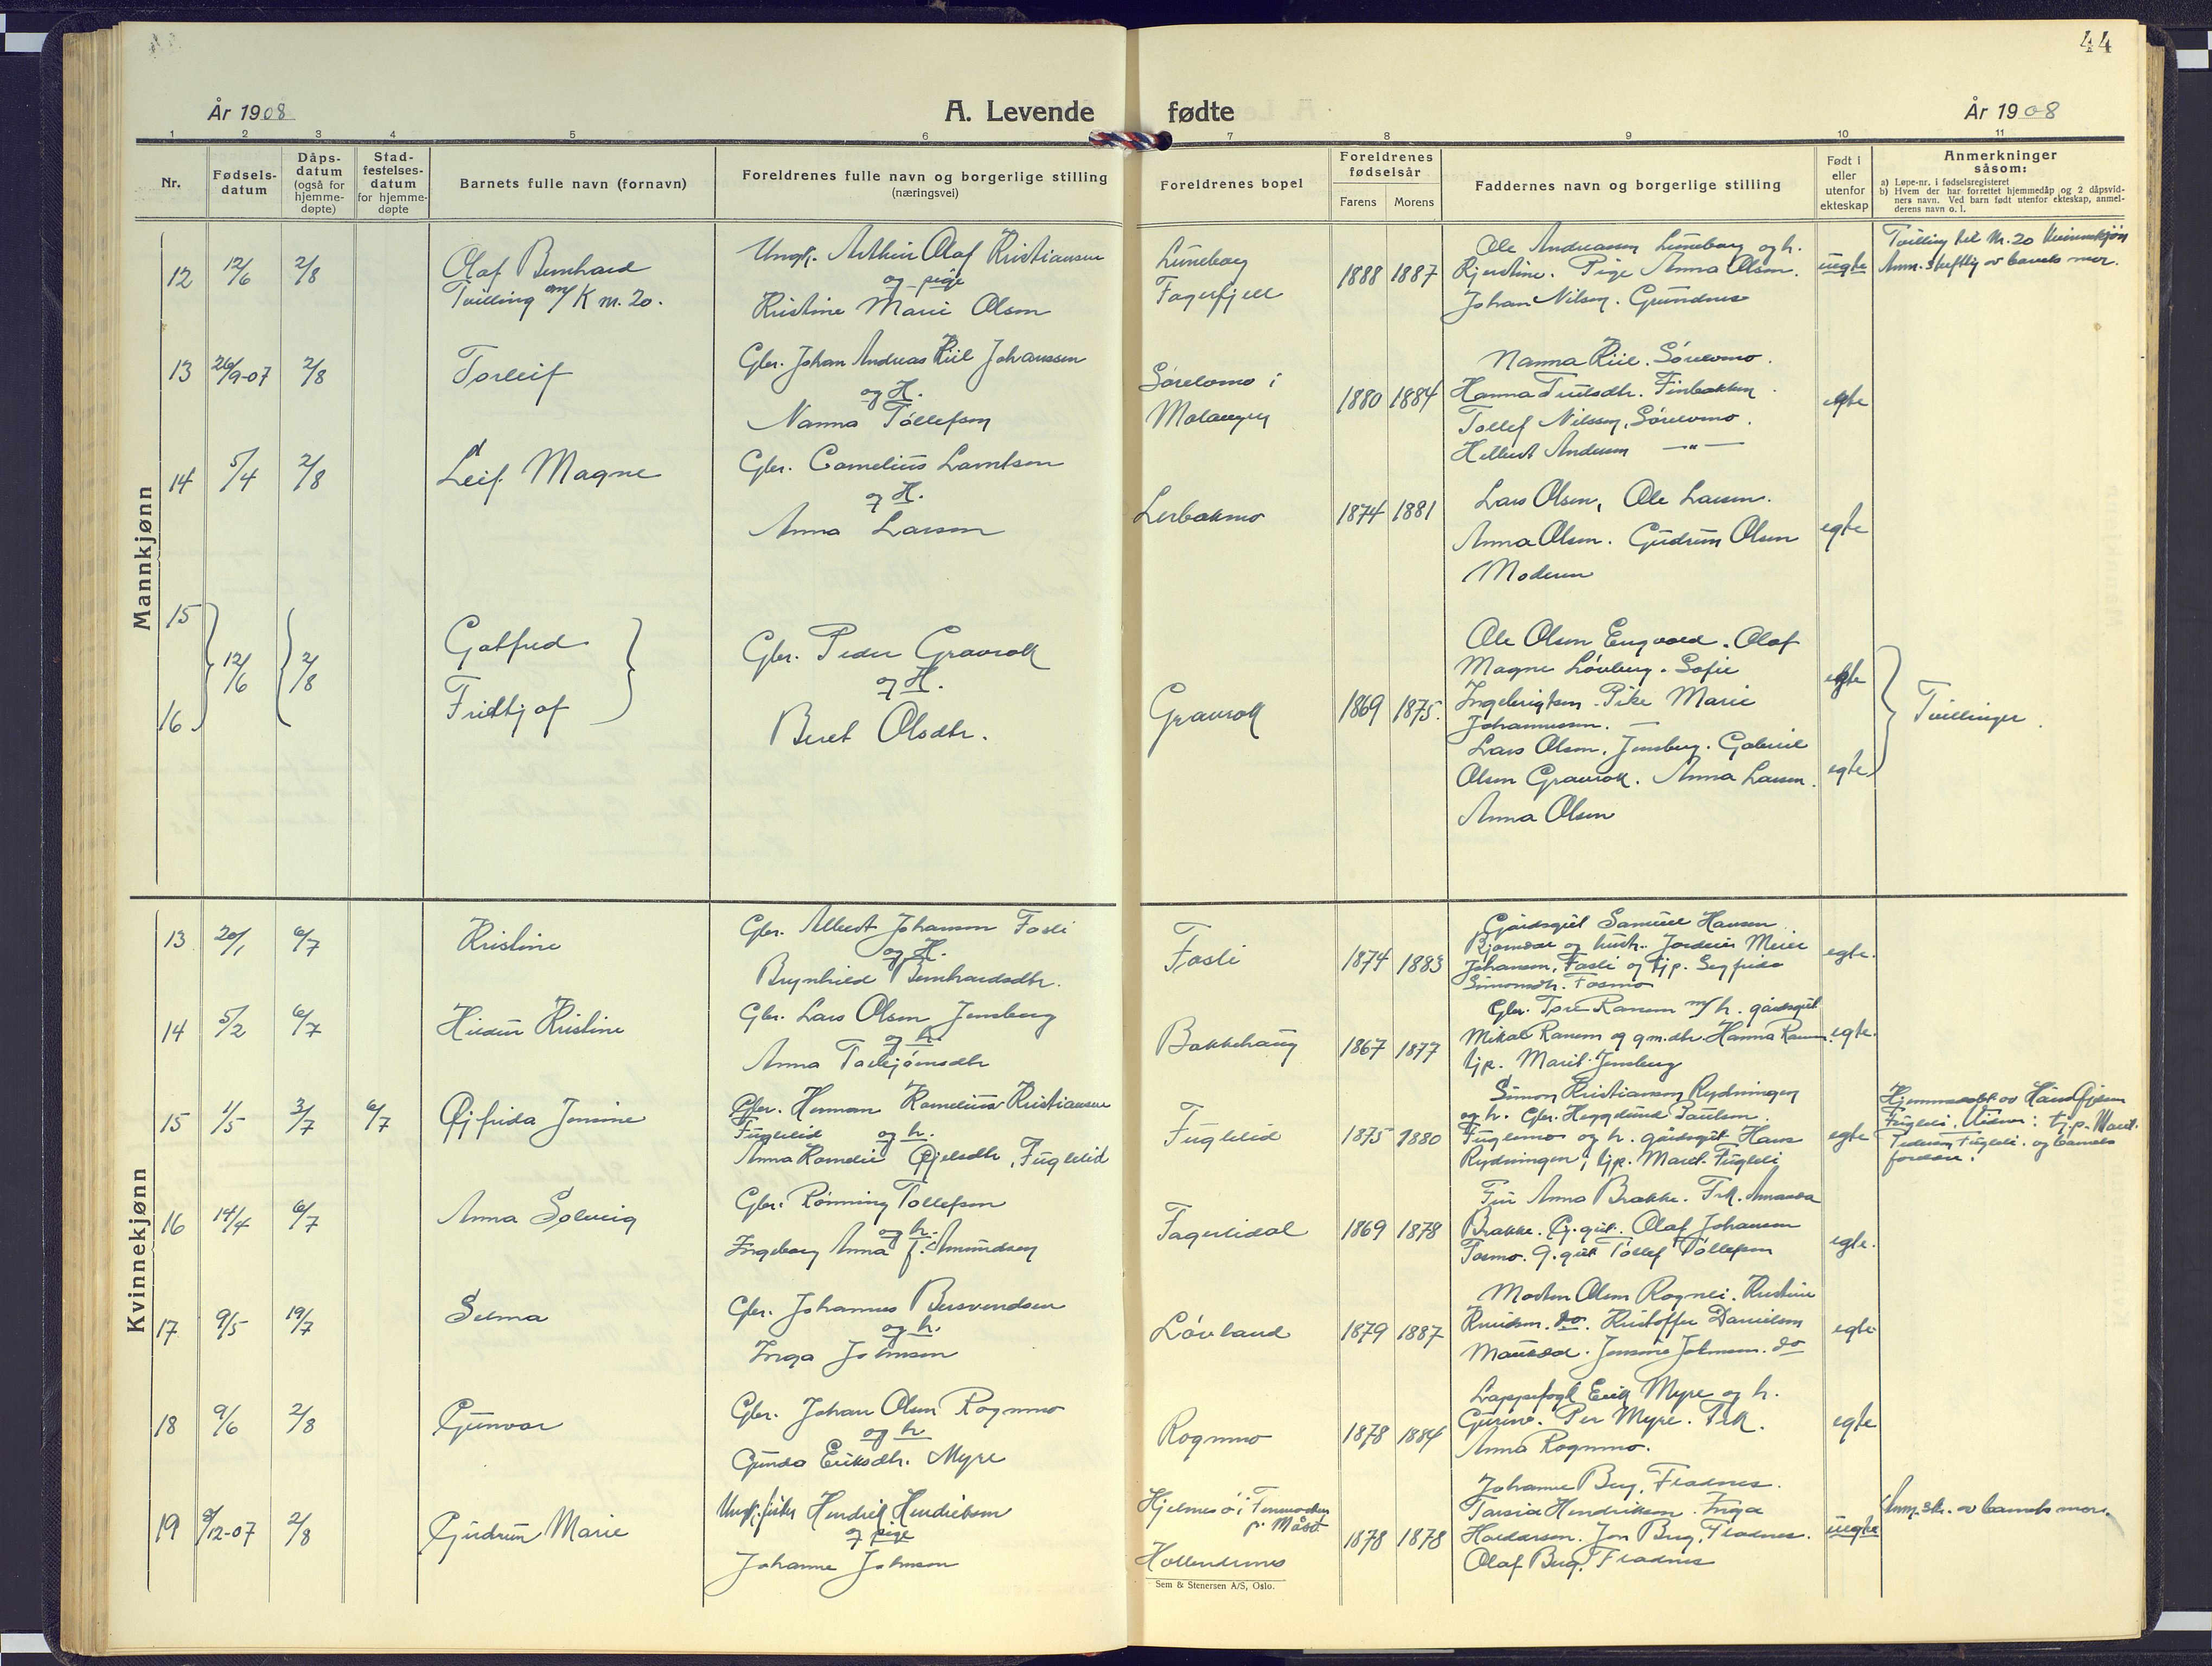 44
År 1908
A. Levende fødte
År 1908
1 2 3 4 5 6 7 8 9 10 11
Nr.
Fødsels-
datum
Dåps-
datum
(også for
hjemme-
døpte)
Stad-
festelses-
datum
for hjemme-
døpte
Barnets fulle navn (fornavn)
Foreldrenes fulle navn og borgerlige stilling
(næringsvei)
Foreldrenes bopel
Foreldrenes
fødselsår
Farens Morens
Faddernes navn og borgerlige stilling
Født i
eller
utenfor
ekteskap
Anmerkninger
såsom:
a) Løpe-nr. i fødselsregisteret
b) Hvem der har forrettet hjemmedåp og 2 dåpsvid-
ners navn. Ved barn født utenfor ekteskap, anmel-
derens navn o. l.
Mannkjønn
12 12/6 2/8
Olaf Bernhard
Tvilling m/K nr. 20.
Ungk. Arthur Olaf Kristiansen
og pige
Kristine Marie Olsen
Luneborg
Fagerfjell
1888 1887
Ole Andreassen Luneborg og h.
Kjerstine. Pige Anna Olsen.
Johan Nilsen. Grundnes
uegte
Tvilling til Nr. 20 kvinnekjøn
Anm. skriftlig av barnets mor.
13 26/9-07 2/8
Torleif
Gbr. Johan Andreas Kiil Johanssen
og H.
Nanna Tollefsen
Sørelvmo i
Malangen
1880 1884
Nanna Kiil. Sørelvmo.
Hanna Truelsdtr. Finbakken.
Tollef Nilssen, Sørelvmo.
Helbert Andersen —"—
egte
14 5/4 2/8
Leif Magne
Gbr. Cornelius Larntsen
og H.
Anna Larsen
Lerbakmo
1874 1881
Lars Olsen, Ole Larsen.
Anna Olsen. Gudrun Olsen
Moderen
egte
15
16
12/6 2/8
Gotfred
Fridtjof
Gbr. Peder Gravrok
og H.
Beret Olsdtr.
Gravrok
1869 1875.
Ole Olsen Engvold. Olaf
Magne Løvberg. Sofie
Ingebrigtsen. Pike Marie
Johannessen.
Lars Olsen, Jensberg. Gabriel
Olsen Gravrok. Anna Larsen.
Anna Olsen
egte
egte
Tvillinger.
Kvinnekjønn
13 20/1 6/7
Kristine
Gbr. Albert Johansen Fosli
og H.
Brynhild Bernhardsdtr.
Fosli
1874 1883
Gårdsgut Samuel Hansen
Bjørnsdal og hustr. Jordeier Meier
Johansen, Fosli og tjp. Segfrida
Simonsdtr. Fosmo
egte.
14 5/2 6/7
Hildur Kristine
Gbr. Lars Olsen Jensberg
og h.
Anna Torbjørnsdtr
Bakkehaug
1867 1877
Gbr. Tore Ranum m/h. gårdsgut
Mikal Ranum og gm.dtr. Hanna Ranum.
tjp. Marit Jensberg
egte.
15 1/5 3/7 6/7
Øjfrida Jensine
Gbr. Herman Kornelius Kristiansen
Fuglelid og h.
Anna Kornelie Øjelsdtr, Fuglelid
Fuglelid
1875 1880
Simon Kristiansen Rydningen
og h. Gbr. Heggelund Paulsen.
Fuglemo og h. gårdsgut Hans
Rydningen, tjp. Marit Fugleli
egte
16 14/4 6/7
Anna Solveig
Gbr. Rønning Tollefsen
og h.
Ingeborg Anna f. Amundsen
Fagerlidal
1869 1878
Fru Anna Brakke. Frk. Amanda
Brakke. G.gut. Olaf Johansen
Fosmo. G.gut Tollef Tollefsen
egte.
17 9/5 19/7
Selma
Gbr. Johannes Bersvendsen
og h.
Inga Johnsen
Løvland
1879 1887
Morten Olsen Rognli. Kristine
Knudsen. do. Kristoffer Danielsen
Mauksdal. Jensine Johnsen. do
egte
18 9/6 2/8
Gunvor
Gbr. Johan Olsen Rognmo
og h.
Gunda Eriksdtr. Myre
Rognmo
1878 1884
Lappefogt Erik Myre og h.
Gurine. Per Myre. Frk.
Anna Rognmo.
egte
19 8/12-07 2/8
Gudrun Marie
Ungk. fisker Hendrik Hendriksen
og pige
Johanne Johnsen
Hjelmesø i Finmarken
p. Måsø
Hollendernes
Sem & Stenersen A/S, Oslo.
1878 1878
Johanne Berg, Fladnes.
Tarsia Hendriksen. Inga
Haldorsen. Jon Berg, Fladnes.
Olaf Berg, Fladnes
uegte
Anm. skr. av barnets mor.